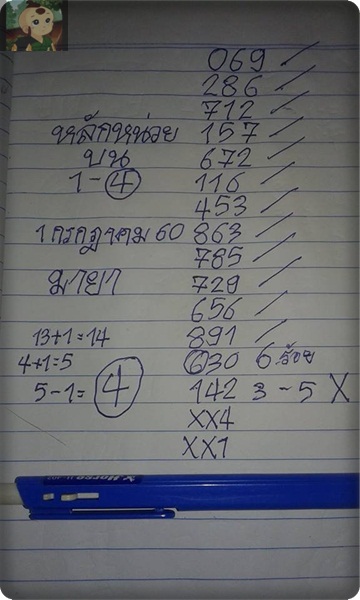 069 /
286 /
712 /
หลักหน่วย 157 /
บน 672 /
1-4 116 /
453 /
1 กรกฎาคม 60 863 /
785 /
มายา 729 /
656 /
13+1=14 891 /
4+1=5 630 6 ร้อย
5-1=4 142 3-5 X
XX4
XX1